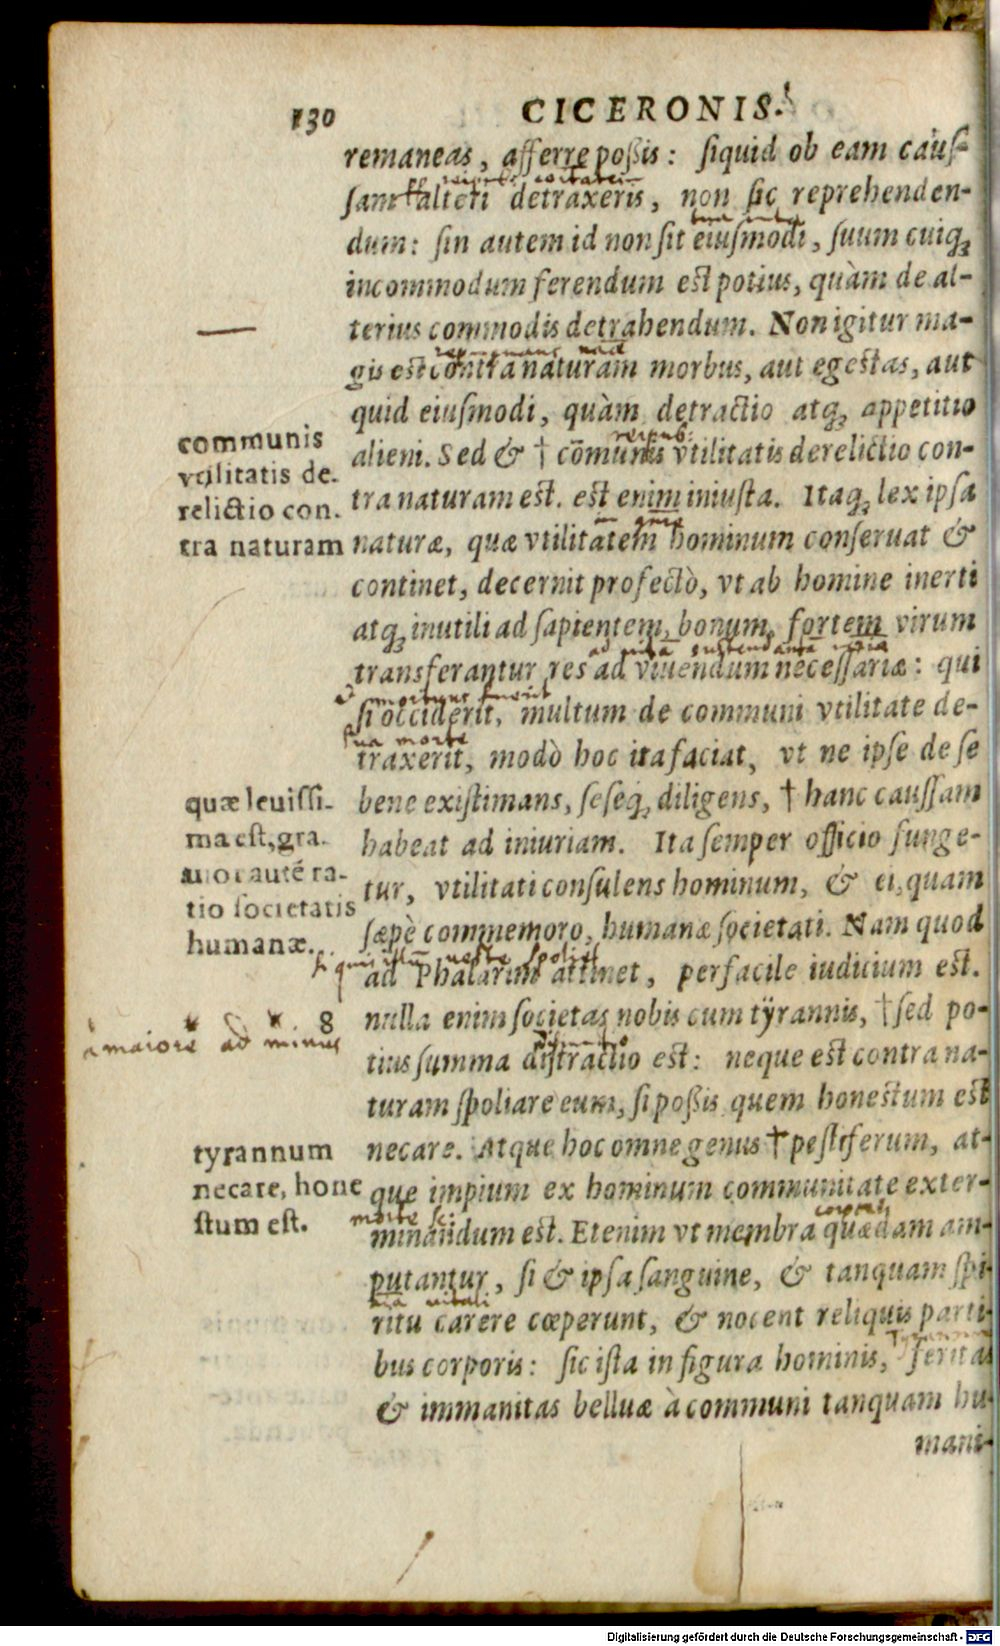 130
CICERONIS.
remaneas, afferre poßis: siquid ob eam cauſ-
ſam alteri detraxeris, non sic reprehenden-
dum: ſin autem id non ſit eiuſmodi, ſuum cuiq;
incommodum ferendum est potius, quàm de al-
terius commodis detrahendum. Non igitur ma-
gis est contra naturam morbus, aut egestas, aut
quid eiuſmodi, quàm detractio atq; appetitio
alieni. Sed & † cõmunis vtilitatis derelictio con-
tra naturam est. est enim iniusta. Itaq; lex ipſa
naturæ, quæ vtilitatem hominum conſeruat &
continet, decernit profectò, vt ab homine inerti
atq; inutili ad ſapientem, bonum, fortem virum
transferantur res ad viuendum neceſſariæ: qui
ſi occiderit, multum de communi vtilitate de-
traxerit, modò hoc ita faciat, vt ne ipſe de ſe
bene existimans, ſeſeq; diligens, † hanc cauſſam
habeat ad iniuriam. Ita ſemper officio funge-
tur, vtilitati conſulens hominum, & ei, quam
ſæpè commemoro, humanæ ſocietati. Nam quod
ad Phalarim attinet, perfacile iudicium est.
nulla enim ſocietas nobis cum tÿrannis, † ſed po-
tius ſumma diſtractio est: neque est contra na-
turam ſpoliare eum, ſi poßis, quem honestum est
necare. Atque hoc omne genus † peſtiferum, at-
que impium ex hominum communitate exter-
minandum est. Etenim vt membra quædam am-
putantur, ſi & ipſa ſanguine, & tanquam ſpi-
ritu carere cœperunt, & nocent reliquis parti-
bus corporis: ſic iſta in figura hominis, feritas
& immanitas belluæ à communi tanquam hu-
mani-
communis
vtilitatis de-
relictio con-
tra naturam
quæ leuiſſi-
ma est, gra-
uior autẽ ra-
tio ſocietatis
humanæ.
8
à maiore ad minus
tyrannum
necare, hone
ſtum eſt.
ad vitã sustendandã
mortuus fuerit
sua morte
morte sc:
Digitalisierung gefördert durch die Deutsche Forschungsgemeinschaft - DFG